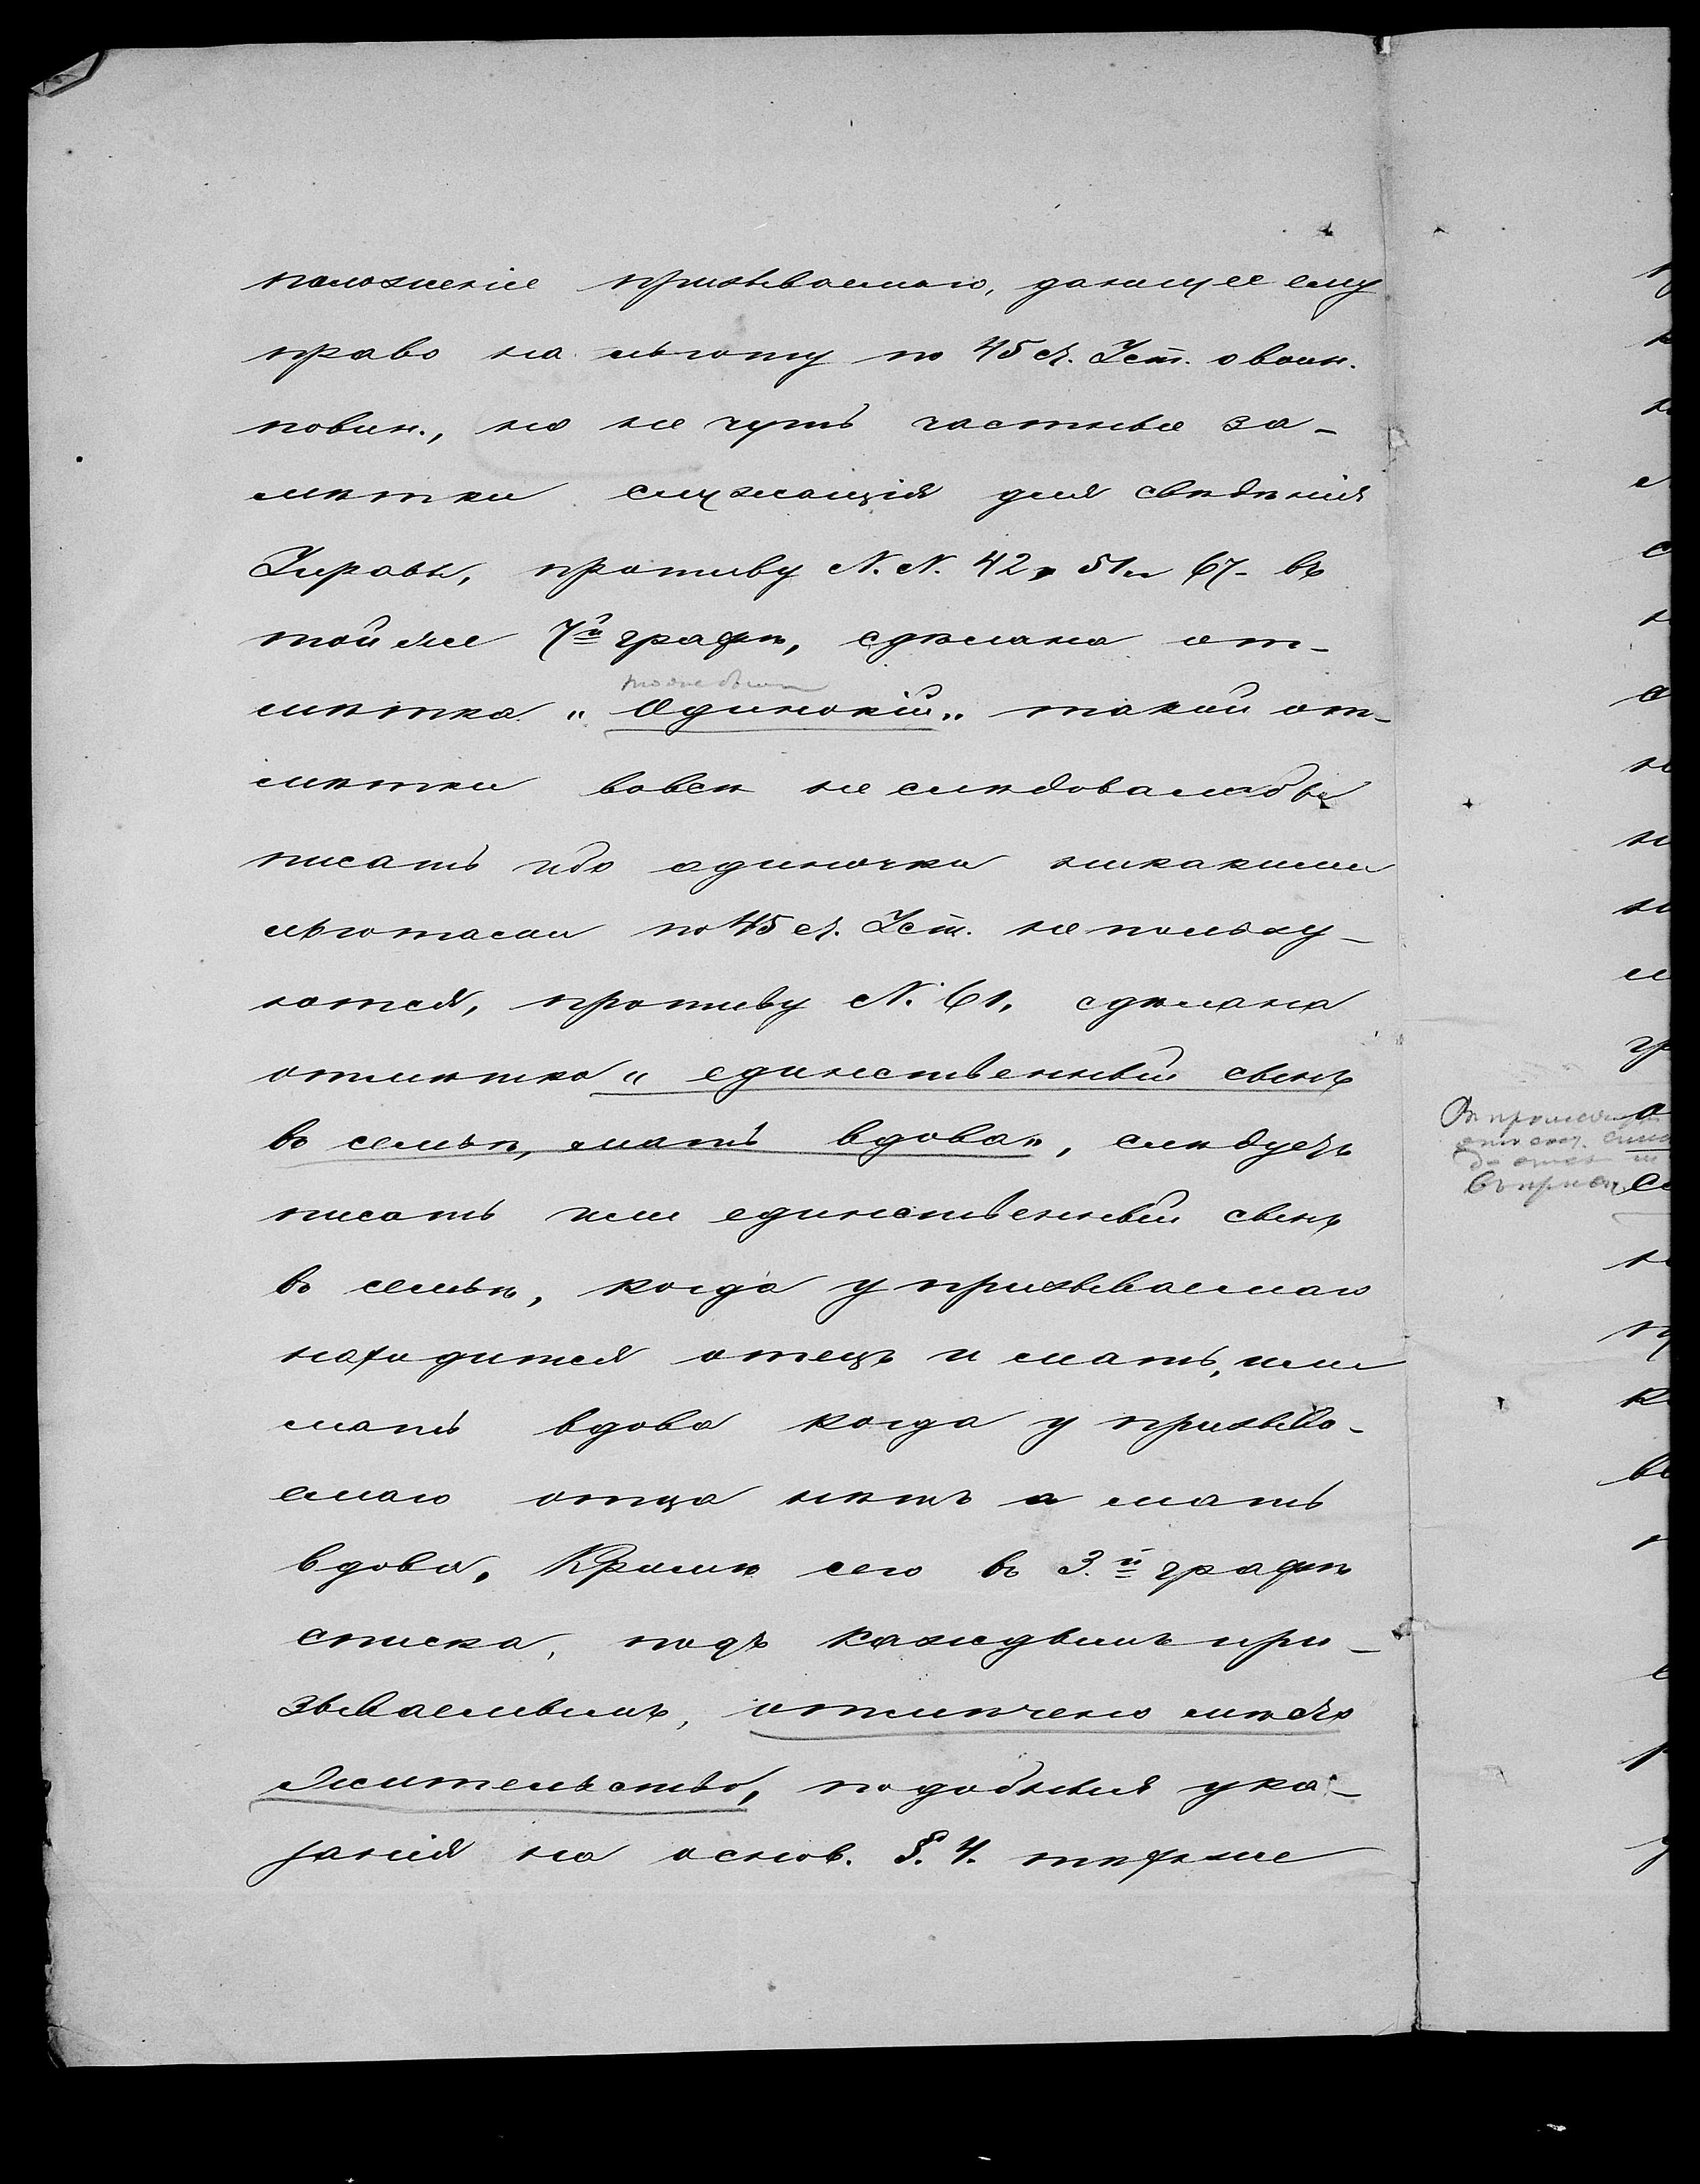 положеніе призываемаго, дающее ему
право на льготу по 45 ст. Уст. о воин.
повин., но не чуть частные за-
мѣтки служащія для свѣдѣнія
Управы, противу N. N. 42, 51 и 67 - въ
той же 7й графѣ, сдѣлана от-
мѣтка „Одинокій„ такой от-
мѣтки вовсе не слѣдовало бы
писать ибо одиночки никакими
льготами по 45 ст. Уст. не пользу-
ются, противу N. 61, сдѣлана
отмѣтка „единственный сынъ
въ семьѣ, мать вдова„, слѣдуетъ
писать или единственный сынъ
въ семьѣ, когда у призываемаго
находится отецъ и мать, или
мать вдова когда у призыва-
емаго отца нѣтъ а мать
вдова, Кромѣ сего въ 3.й графѣ
списка, подъ каждымъ при-
зываемымъ, отмѣчено мѣсто
жительство, подобныя ука-
занія на основ. §. 4. тѣхъ же